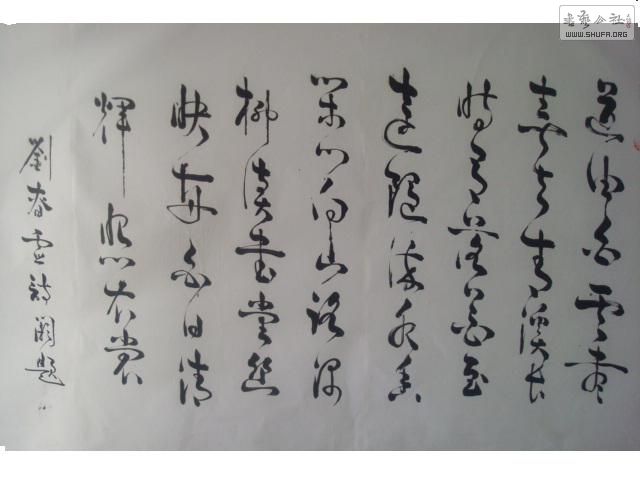 書藝公社
WWW.SHUFA.ORG
道由白雲盡
春與青溪長
時有落花至
遠隨流水香
閑門向山路深
柳讀書堂幽
映每白日清
輝照衣裳
劉昚虛詩闕題